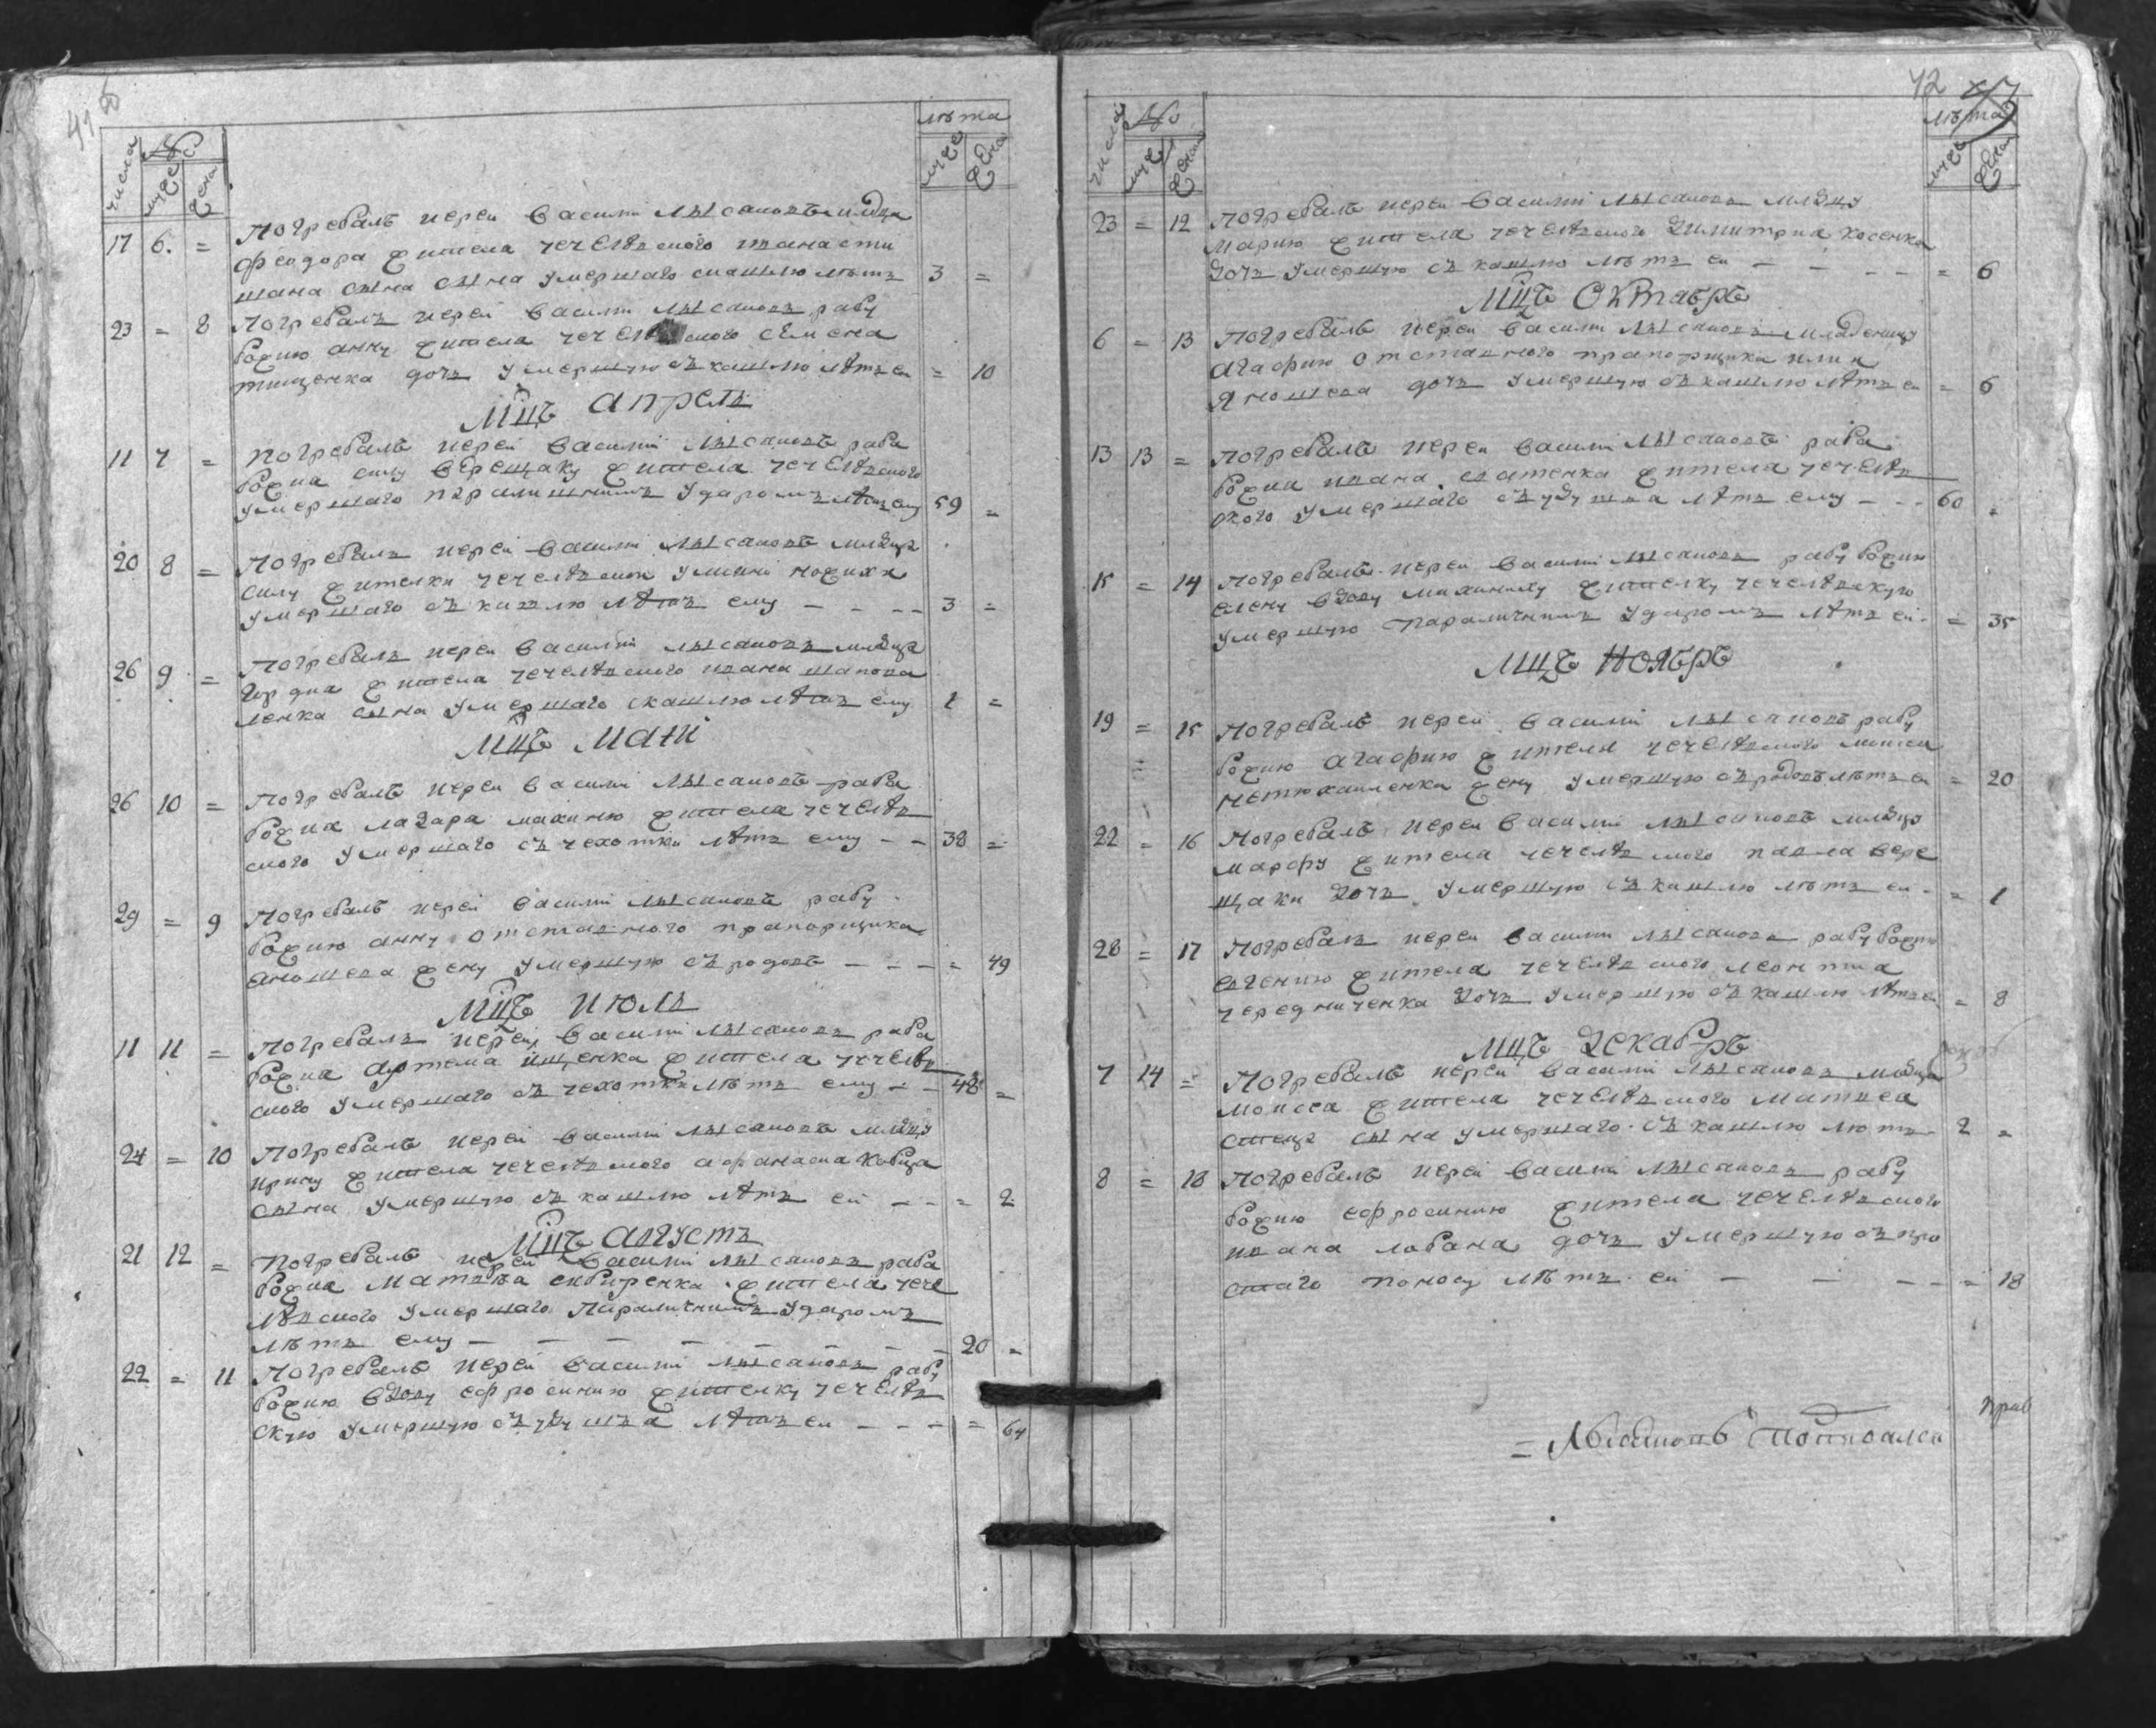 41
лѣта
числа № муже жена муже жена
17 6. = Погребалъ иерей Василий Лысановъ младца
Феодора жителя чечелѣвского
сына сына умершаго скашлю лѣтъ 3 =
23 = 8 Погребалъ иерей Василий Лысановъ рабу
божию анну жителя семена
тищенка дочь умершую съ кашлю лѣтъ ей = 10
Мцъ апрель
11 7 = Погребалъ иерей Василий Лысановъ раба
божия силу верещаку жителя чечелѣвского
умершаго паралишнимъ ударомъ лѣтъ ему 59 =
20 8 = Погребалъ иерей Василий Лысановъ младца
силу жителки чечелѣвской
умершаго съ кашлю лѣтъ ему — — — — 3 =
26 9 = Погребалъ иерей Василий Лысановъ младца
жителя чечелѣвского ивана шапова
ленка сына умершаго скашлю лѣтъ ему 1 =
Мцъ Маїи
26 10 = Погребалъ иерей Василий Лысановъ раба
божия лазара махиню жителя чечелѣв
ского умершаго съ чехотки лѣтъ ему — — 38 =
29 = 9 Погребалъ иерей Василий Лысановъ рабу
божию анну отставного прапорщика
яношева жену умершую съ родовъ — — — = 49
Мцъ июль
11 11 = Погребалъ иерей Василий Лысановъ раба
божия артема ищенка жителя чечелѣв
ского умершаго съ чехотки лѣтъ ему — — 48 =
24 = 10 Погребалъ иерей Василий Лысановъ младцу
ирину жителя чечелѣвского афанасиа кобца
сына умершую съ кашлю лѣтъ ей — — = 2
Мцъ Августъ
21 12 = Погребалъ иерей Василий Лысановъ раба
божия Матвѣа сибиренка жителя чече
лѣвского умершаго Параличнимъ ударомъ
лѣтъ ему — — — — — — — 20 =
22 = 11 Погребалъ иерей Василий Лысановъ рабу
божию вдову ефросинию жителку чечелѣв
скую умершую съ удушъа лѣтъ ей — — — = 64
42
лѣта
числа № муже жена муже жена
23 = 12 Погребалъ иерей Василий Лысановъ младцу
Марию жителя чечелѣвского Димитриа косенка
дочь умершую съ кашлю лѣтъ ей — — — — = 6
Мцъ Октабръ
6 = 13 Погребалъ иерей Василий Лысановъ младеницу
агафию отставного прапорщика илии
Яношева дочь умершую съ кашлю лѣтъ ей = 6
13 13 = Погребалъ иерей Василий Лысановъ раба
божия ивана жителя чечелѣв
ского умершаго съ удушъа лѣтъ ему — — — 60 =
15 = 14 Погребалъ иерей Василий Лысановъ рабу божию
елену вдову махинну жителку чечелѣвскую
умершую Параличнимъ ударомъ лѣтъ ей = 35
Мцъ Ноябръ
19 = 15 Погребалъ иерей Василий Лысановъ рабу
божию агафию жителя чечелѣвского
жену умершую съ родовъ лѣтъ ей = 20
22 = 16 Погребалъ иерей Василий Лысановъ младцу
марфу жителя чечелѣвского павла вере
щаки дочь умершую съ кашлю лѣтъ ей = 1
28 = 17 Погребалъ иерей Василий Лысановъ рабу божию
евгению жителя чечелѣвского леонтиа
чередниченка дочь умершую съ кашлю лѣтъ ей = 8
Мцъ Декабръ
7 14 = Погребалъ иерей Василий Лысановъ младца
моисеа жителя чечелѣвского Матвеа
сына умершаго съ кашлю лѣтъ 2 =
8 = 18 Погребалъ иерей Василий Лысановъ рабу
божию ефросинию жителя чечелѣвского
ивана лобана дочь умершую съ про
стаго поносу лѣтъ ей — — — — = 18